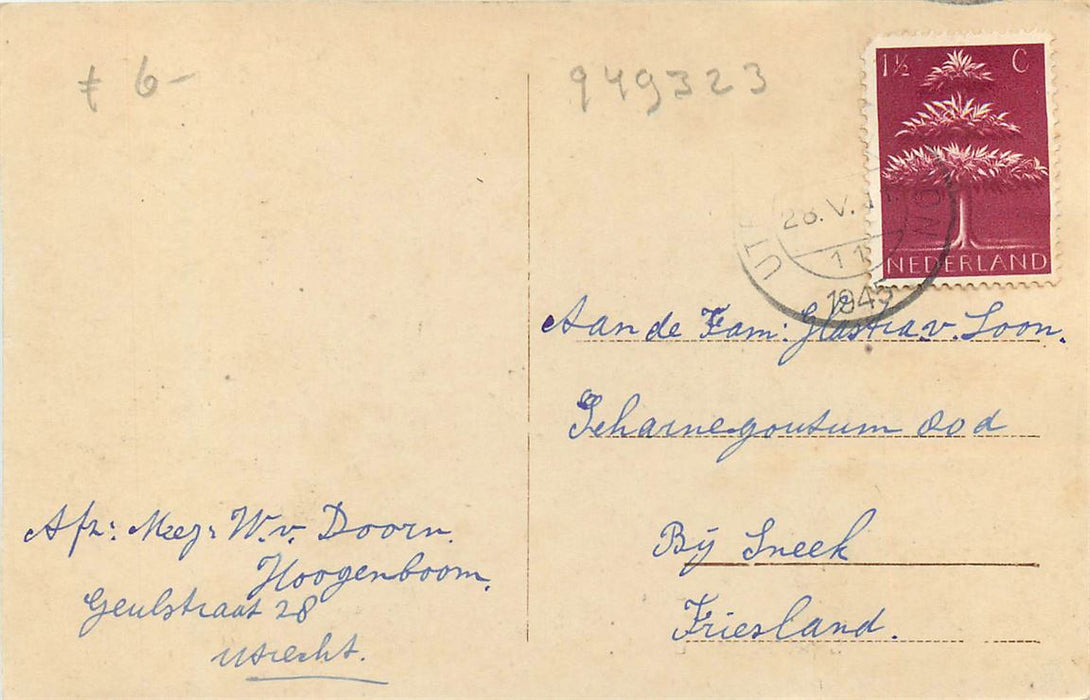 ƒ 6-
949323
1½ C
NEDERLAND
28.V.
11
1945
Aan de Fam: Glastra v. Loon.
Scharnegoutum Ood
Bij Sneek
Friesland.
Afz: Mej: W. v. Doorn.
Hoogenboom.
Geulstraat 28
Utrecht.